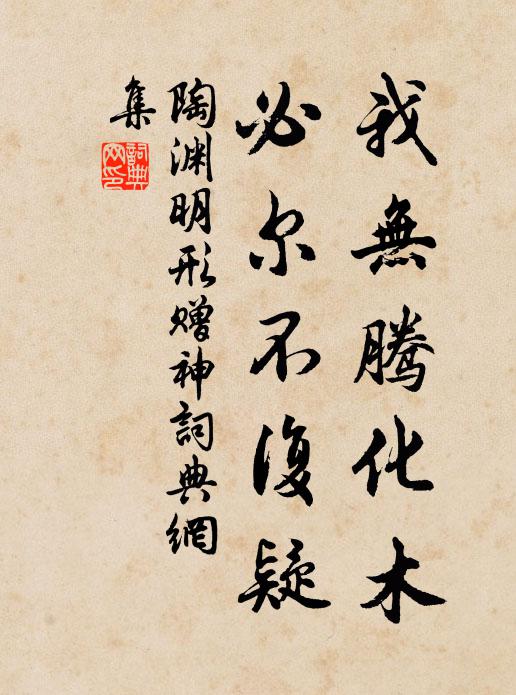 我無騰化木
必尔不復疑
陶渊明形赠神詞典網
集
詞典
网印